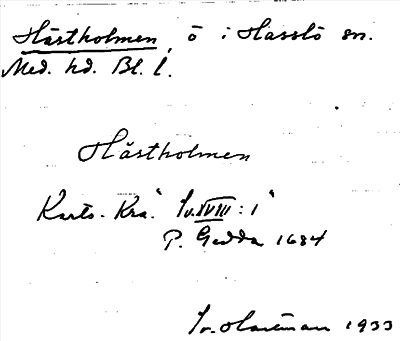 Hästholmen, ö i Hasslö sn.
Med. hd. Bl. l.
Hästholmen
Karts. Kra. "Sv. XVIII : 1"
P. Gedda 1684
Iv. Hartman 1933